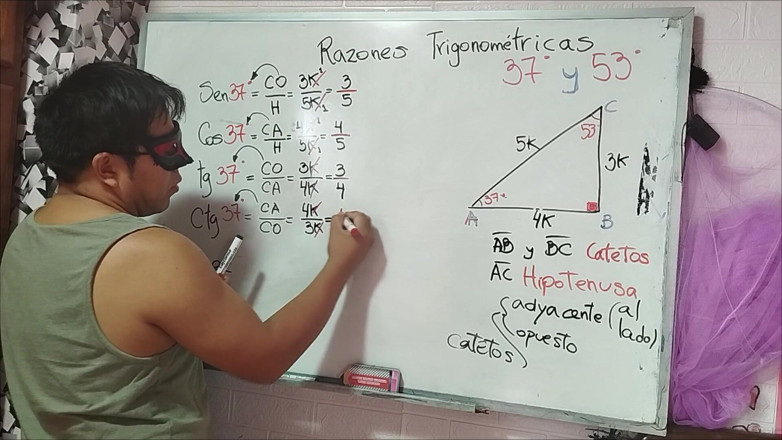 Razones Trigonométricas
37° y 53°
Sen 37° = CO/H = 3K/5K = 3/5
Cos 37° = CA/H = 4K/5K = 4/5
tg 37° = CO/CA = 3K/4K = 3/4
Ctg 37° = CA/CO = 4K/3K =
C
53°
5K
3K
37°
A
4K
B
AB y BC Catetos
AC Hipotenusa
catetos
adyacente (al lado)
opuesto